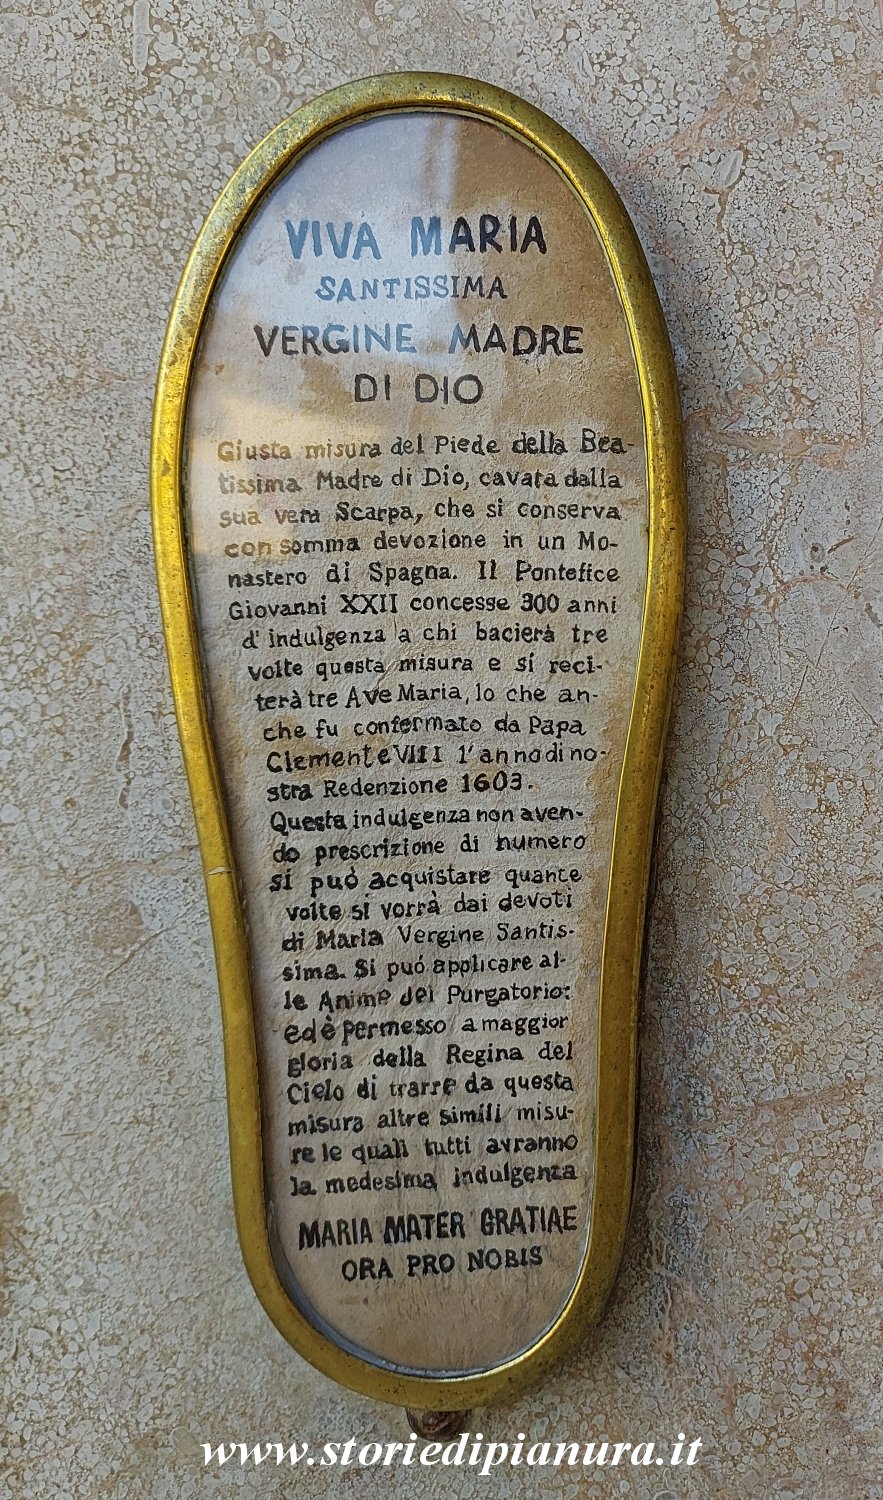 VIVA MARIA
SANTISSIMA
VERGINE MADRE
DI DIO
Giusta misura del Piede della Bea-
tissima Madre di Dio, cavata dalla
sua vera Scarpa, che si conserva
con somma devozione in un Mo-
nastero di Spagna. Il Pontefice
Giovanni XXII concesse 300 anni
d'indulgenza a chi bacierà tre
volte questa misura e si reci-
terà tre Ave Maria, lo che an-
che fu confermato da Papa
Clemente VIII l'anno di no-
stra Redenzione 1603.
Questa indulgenza non aven-
do prescrizione di numero
si può acquistare quante
volte si vorrà dai devoti
di Maria Vergine Santis-
sima. Si puó applicare al-
le Anime del Purgatorio:
ed è permesso a maggior
gloria della Regina del
Cielo di trarre da questa
misura altre simili misu-
re le quali tutti avranno
la medesima indulgenza
MARIA MATER GRATIAE
ORA PRO NOBIS
www.storiedipianura.it